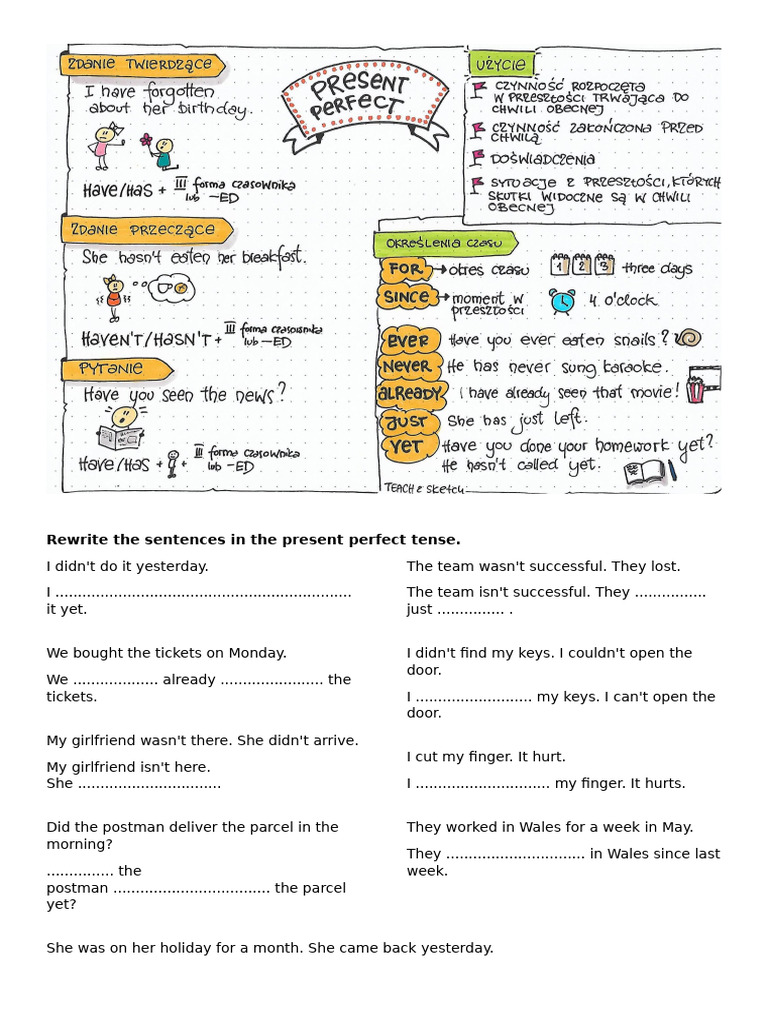 ZDANIE TWIERDZĄCE
I have forgotten
about her birthday.
HAVE/HAS + III forma czasownika
lub -ED
ZDANIE PRZECZĄCE
She hasn't eaten her breakfast.
HAVEN'T/HASN'T + III forma czasownika
lub -ED
PYTANIE
Have you seen the news?
HAVE/HAS + + III forma czasownika
lub -ED
PRESENT
PERFECT
UŻYCIE
CZYNNOŚĆ ROZPOCZĘTA
W PRZESZŁOŚCI TRWAJĄCA DO
CHWILI OBECNEJ
CZYNNOŚĆ ZAKOŃCZONA PRZED
CHWILĄ
DOŚWIADCZENIA
SYTUACJE Z PRZESZŁOŚCI, KTÓRYCH
SKUTKI WIDOCZNE SĄ W CHWILI
OBECNEJ
OKREŚLENIA CZASU
FOR → okres czasu 1 2 3 three days
SINCE → moment w
przeszłości 4 o'clock
EVER Have you ever eaten snails?
NEVER He has never sung karaoke.
ALREADY I have already seen that movie!
JUST She has just left.
YET Have you done your homework yet?
He hasn't called yet.
TEACH & Sketch
Rewrite the sentences in the present perfect tense.
I didn't do it yesterday.
I ..................................................................
it yet.
We bought the tickets on Monday.
We ................... already ....................... the
tickets.
My girlfriend wasn't there. She didn't arrive.
My girlfriend isn't here.
She ................................
Did the postman deliver the parcel in the
morning?
............... the
postman ................................... the parcel
yet?
She was on her holiday for a month. She came back yesterday.
The team wasn't successful. They lost.
The team isn't successful. They ................
just ............... .
I didn't find my keys. I couldn't open the
door.
I .......................... my keys. I can't open the
door.
I cut my finger. It hurt.
I .............................. my finger. It hurts.
They worked in Wales for a week in May.
They ............................... in Wales since last
week.